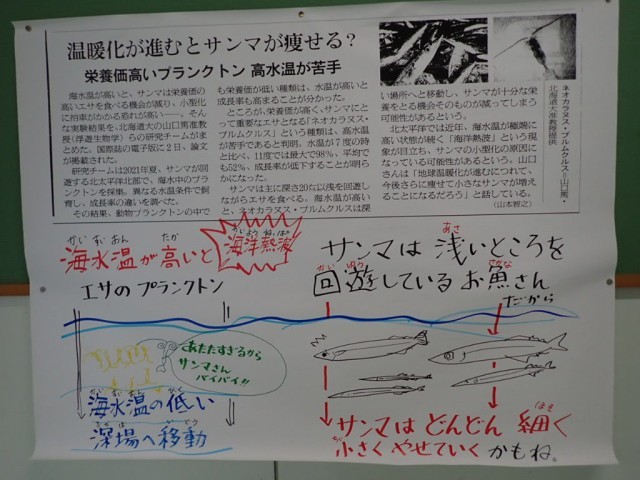 温暖化が進むとサンマが痩せる?
栄養価高いプランクトン 高水温が苦手
海水温が高いと、サンマは栄養価の
高いエサを食べる機会が減り、小型化
に拍車がかかる恐れが高い――。そん
な実験結果を、北海道大の山口篤准教
授(浮遊生物学)らの研究チームがま
とめた。国際誌の電子版に2日、論文
が掲載された。
研究チームは2021年夏、サンマが回
遊する北太平洋北部で、海水中のプラ
ンクトンを採集。異なる水温条件で飼
育し、成長率の違いを調べた。
その結果、動物プランクトンの中で
も栄養価が低い種類は、水温が高いと
成長率も高まることが分かった。
ところが、栄養価が高く、サンマにと
って重要なエサとなる「ネオカラヌス・
プルムクルス」という種類は、高水温
が苦手であると判明。水温が7度の時
と比べ、11度では最大で98%、平均で
も52%、成長率が低下することが明ら
かになった。
サンマは主に深さ20㍍以浅を回遊し
ながらエサを食べる。海水温が高い
と、ネオカラヌス・プルムクルスは深
い場所へと移動し、サンマが十分な栄
養をとる機会そのものが減ってしまう
可能性があるという。
北太平洋では近年、海水温が極端に
高い状態が続く「海洋熱波」という現
象が目立ち、サンマの小型化の原因に
なっている可能性があるという。山口
さんは「地球温暖化が進むにつれて、
今後さらに痩せて小さなサンマが増え
ることになるだろう」と話している。
(山本智之)
ネオカラヌス・プルムクルス=山口篤・
北海道大准教授提供
かいすいおん たか かいようねっぱ
海水温が高いと 海洋熱波
エサのプランクトン
あさ
サンマは 浅いところを
かい ゆう さかな
回遊しているお魚さん
だから
あたたすぎるから
サンマさん
バイバイ!!
かいすいおん ひく
海水温の低い
ふかば いどう
深場へ移動
ほそ
サンマは どんどん 細く
ちい
小さく やせていく かもね。